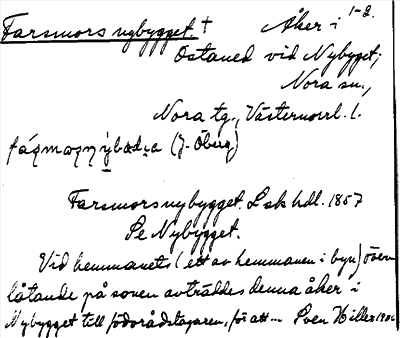 Farsmors nybygget. † Åker i 1-2.
Ostaned vid Nybygget,
Nora sn.,
Nora tg., Västernorrl. l.
(J. Öberg)
Farsmorsnybygget. L sk hdl. 1857
Se Nybygget.
Vid hemmanets (ett av hemmanen i byn) över
låtande på sonen avträddes denna åker i
Nybygget till födorådstagaren, för att ... Sven Hiller